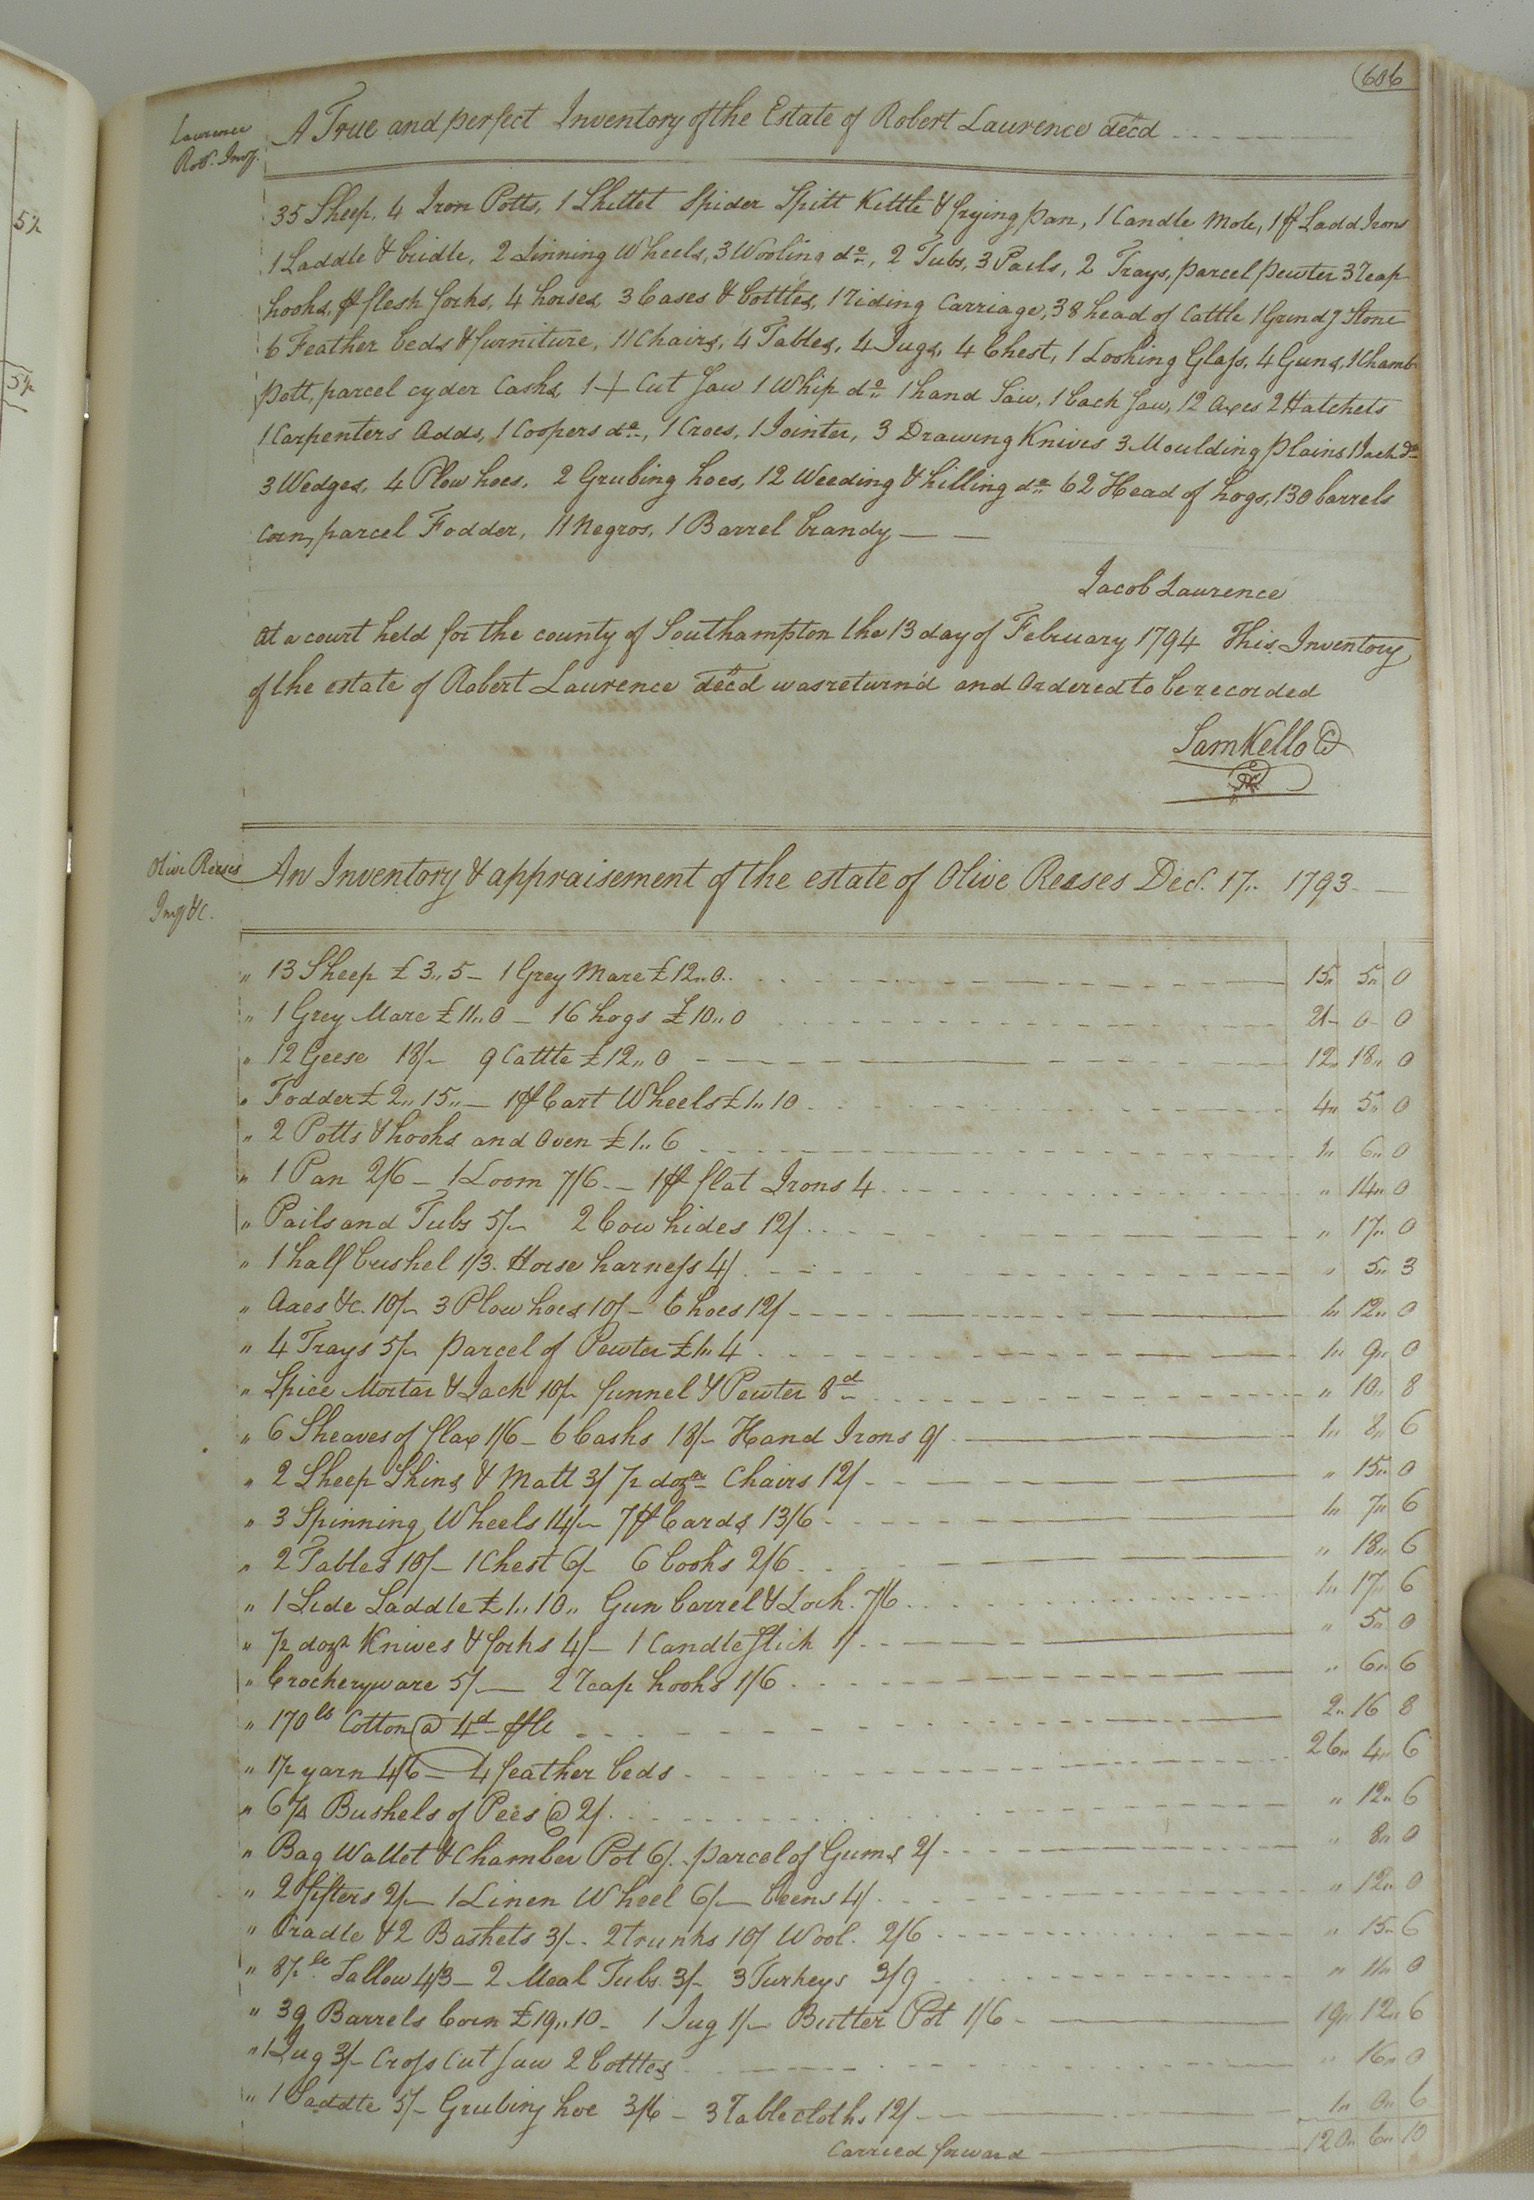 606
Lawrence
Rob. Invy.
A True and perfect Inventory of the Estate of Robert Laurence decd
35 Sheep, 4 Iron Potts, 1 Skillet Spider Spitt Kittle & frying pan, 1 Candle Mole, 1 pr Sadd Irons
1 Saddle & bridle, 2 Linning Wheels, 3 Wooling do, 2 Tubs, 3 Pails, 2 Trays, parcel pewter 3 reap
hooks, pr flesh forks, 4 horses, 3 Cases & bottles, 1 riding Carriage, 38 head of Cattle 1 Grindg Stone
6 Feather beds & furniture, 11 Chairs, 4 Tables, 4 Jugs, 4 Chest, 1 Looking Glass, 4 Guns, 1 Chamb
Pott, parcel cyder Casks, 1 + Cut Saw 1 Whip do 1 hand Saw, 1 back Saw, 12 axes 2 Hatchets
1 Carpenters adds, 1 Coopers do, 1 Croes, 1 Jointer, 3 Drawing Knives 3 Moulding plains 1 Jack do
3 Wedges, 4 Plow hoes, 2 Grubing hoes, 12 Weeding & hilling do 62 Head of hogs, 130 barrels
corn, parcel Fodder, 11 Negros, 1 Barrel brandy
Jacob Laurence
at a court held for the county of Southampton the 13 day of February 1794 This Inventory
of the estate of Robert Laurence decd was return'd and Ordered to be recorded
Sam Kello C
Olive Reeses
Invy &c.
An Inventory & appraisement of the estate of Olive Reeses Decr. 17.. 1793
" 13 Sheep £3..5 - 1 Grey Mare £12..0 15.. 5.. 0
" 1 Grey Mare £11..0 - 16 hogs £10..0 21 - 0 - 0
" 12 Geese 18/- 9 Cattle £12..0 12.. 18.. 0
" Fodder £2..15.. - 1 pr Cart Wheels £1..10 4.. 5.. 0
" 2 Potts & hooks and Oven £1..6 1.. 6.. 0
" 1 Pan 2/6 - 1 Loom 7/6 - 1 pr flat Irons 4 " 14.. 0
" Pails and Tubs 5/- 2 Cow hides 12/ " 17.. 0
" 1 half bushel 1/3. Horse harness 4/ " 5.. 3
" Axes &c. 10/- 3 Plow hoes 10/- 6 hoes 12/- 1.. 12.. 0
" 4 Trays 5/- parcel of Pewter £1..4 1.. 9.. 0
" Spice Mortar & Jack 10/- funnel & Pewter 8d " 10.. 8
" 6 Sheaves of flax 1/6 - 6 Casks 18/- Hand Irons 9/ 1.. 8.. 6
" 2 Sheep Skins & Matt 3/ ½ dozn Chairs 12/ " 15.. 0
" 3 Spinning Wheels 14/- 7 pr Cards 13/6 1.. 7.. 6
" 2 Tables 10/- 1 Chest 6/- 6 books 2/6 " 18.. 6
" 1 Side Saddle £1..10.. Gun barrel & Lock. 7/6 1.. 17.. 6
" ½ dozn Knives & forks 4/- 1 Candlestick 1/ " 5.. 0
" Crockeryware 5/- 2 reap hooks 1/6 " 6.. 6
" 170 lb Cotton @ 4d pr lb 2.. 16 8
" 1½ yarn 4/6 - 4 feather beds 26.. 4.. 6
" 6¼ Bushels of Pees @ 2/ " 12.. 6
" Bag Wallet & Chamber Pot 6/. parcel of Gums 2/ " 8.. 0
" 2 sifters 2/- 1 Linen Wheel 6/- beens 4/ " 12.. 0
" Cradle & 2 Baskets 3/-. 2 trunks 10/ Wool. 2/6 " 15.. 6
" 8½ lb Tallow 4/3 - 2 Meal Tubs 3/- 3 Turkeys 3/9 " 11.. 0
" 39 Barrels Corn £19..10 - 1 Jug 1/- Butter Pot 1/6 19.. 12.. 6
" 1 Jug 3/- Cross Cut Saw 2 bottles " 16.. 0
" 1 Saddle 5/- Grubing hoe 3/6 - 3 Tablecloths 12/- 1.. 0.. 6
Carried forward 120.. 6.. 10